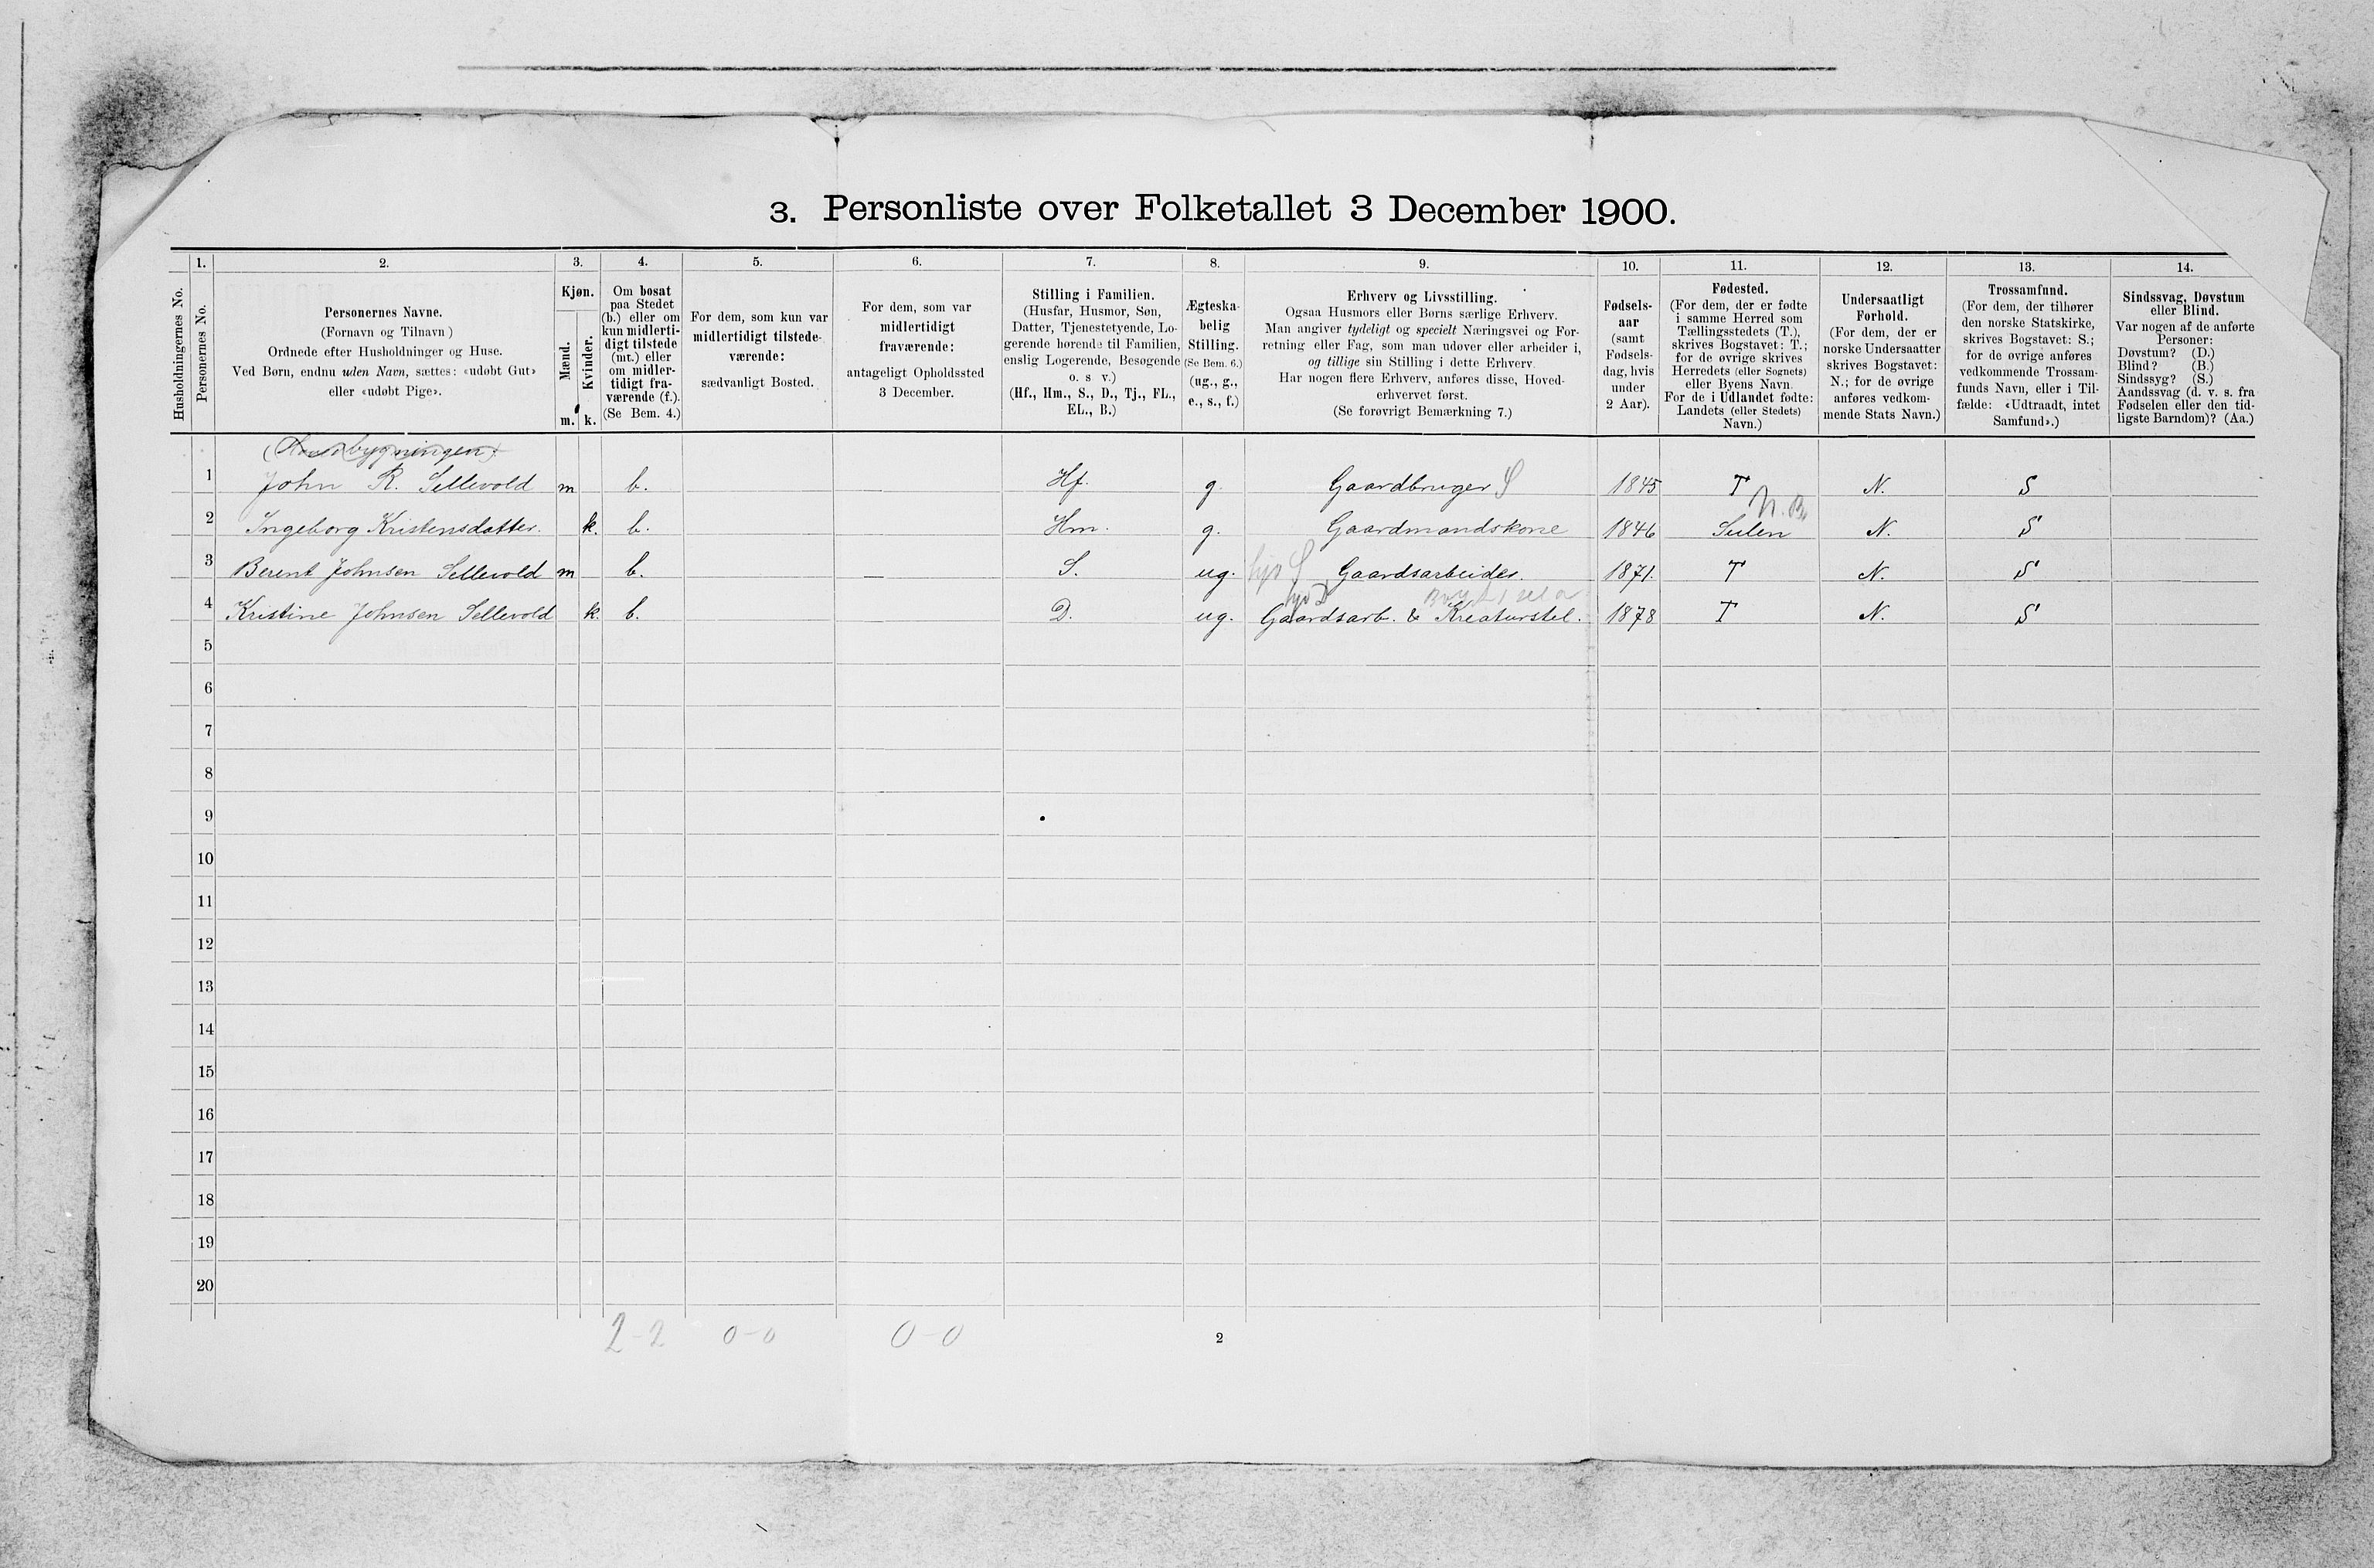 3. Personliste over Folketallet 3 December 1900.
1. 2. 3. 4. 5. 6. 7. 8. 9. 10. 11. 12. 13. 14.
Husholdningernes No.
Personernes No.
Personernes Navne.
(Fornavn og Tilnavn)
Ordnede efter Husholdninger og Huse.
Ved Børn, endnu uden Navn, sættes: «udøbt Gut»
eller «udøbt Pige».
Kjøn.
Mænd.
Kvinder.
m. k.
Om bosat
paa Stedet
(b.) eller om
kun midlerti-
digt tilstede
(mt.) eller
om midler-
tidigt fra-
værende (f.).
(Se Bem. 4.)
For dem, som kun var
midlertidigt tilstede-
værende:
sædvanligt Bosted.
For dem, som var
midlertidigt
fraværende:
antageligt Opholdssted
3 December.
Stilling i Familien.
(Husfar, Husmor, Søn,
Datter, Tjenestetyende, Lo-
gerende hørende til Familien,
enslig Logerende, Besøgende
o. s. v.)
(Hf., Hm., S., D., Tj., FL.,
EL., B.)
Ægteska-
belig
Stilling.
(Se Bem. 6.)
(ug., g.,
e., s., f.)
Erhverv og Livsstilling.
Ogsaa Husmors eller Børns særlige Erhverv.
Man angiver tydeligt og specielt Næringsvei og For-
retning eller Fag, som man udøver eller arbeider i,
og tillige sin Stilling i dette Erhverv.
Har nogen flere Erhverv, anføres disse, Hoved-
erhvervet først.
(Se forøvrigt Bemærkning 7.)
Fødsels-
aar
(samt
Fødsels-
dag, hvis
under
2 Aar).
Fødested.
(For dem, der er fødte
i samme Herred som
Tællingsstedets (T.),
skrives Bogstavet: T.;
for de øvrige skrives
Herredets (eller Sognets)
eller Byens Navn.
For de i Udlandet fødte:
Landets (eller Stedets)
Navn.)
Undersaatligt
Forhold.
(For dem, der er
norske Undersaatter
skrives Bogstavet:
N.; for de øvrige
anføres vedkom-
mende Stats Navn.)
Trossamfund.
(For dem, der tilhører
den norske Statskirke,
skrives Bogstavet: S.;
for de øvrige anføres
vedkommende Trossam-
funds Navn, eller i Til-
fælde: «Udtraadt, intet
Samfund».)
Sindssvag, Døvstum
eller Blind.
Var nogen af de anførte
Personer:
Døvstum? (D.)
Blind? (B.)
Sindssyg? (S.)
Aandssvag (d. v. s. fra
Fødselen eller den tid-
ligste Barndom)? (Aa.)
1 John R. Sellevold m b. — Hf. g. Gaardbruger S 1845 T N. S
N. B.
2 Ingeborg Kristensdatter. k. b. Hm. g. Gaardmandskone 1846 Sulen N. S
3 Berent Johnsen Sellevold m b. — S. ug. hjs S Gaardsarbeider. 1871. T N. S
hjs D
4 Kristine Johnsen Sellevold k. b. D. ug. Gaardsarb. & Kreaturstel. 1878 T N. S
5
6
7
8
9
10
11
12
13
14
15
16
17
18
19
20
2-2 0-0 0-0 2